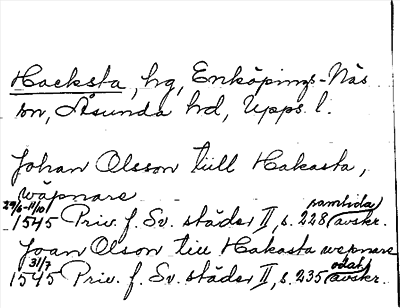 Hacksta, hg, Enköpings-Näs
sn, Åsunda hd, Upps. l.
Johan Olsson till Hakasta,
wäpnare
29/6-11/10 samtida
1545 Priv. f. Sv. städer II, s. 228 (avskr.
Joan Olson till Hakasta wepnare
31/7 odat.
1545 Priv. f. Sv. städer II, s. 235 (avskr.